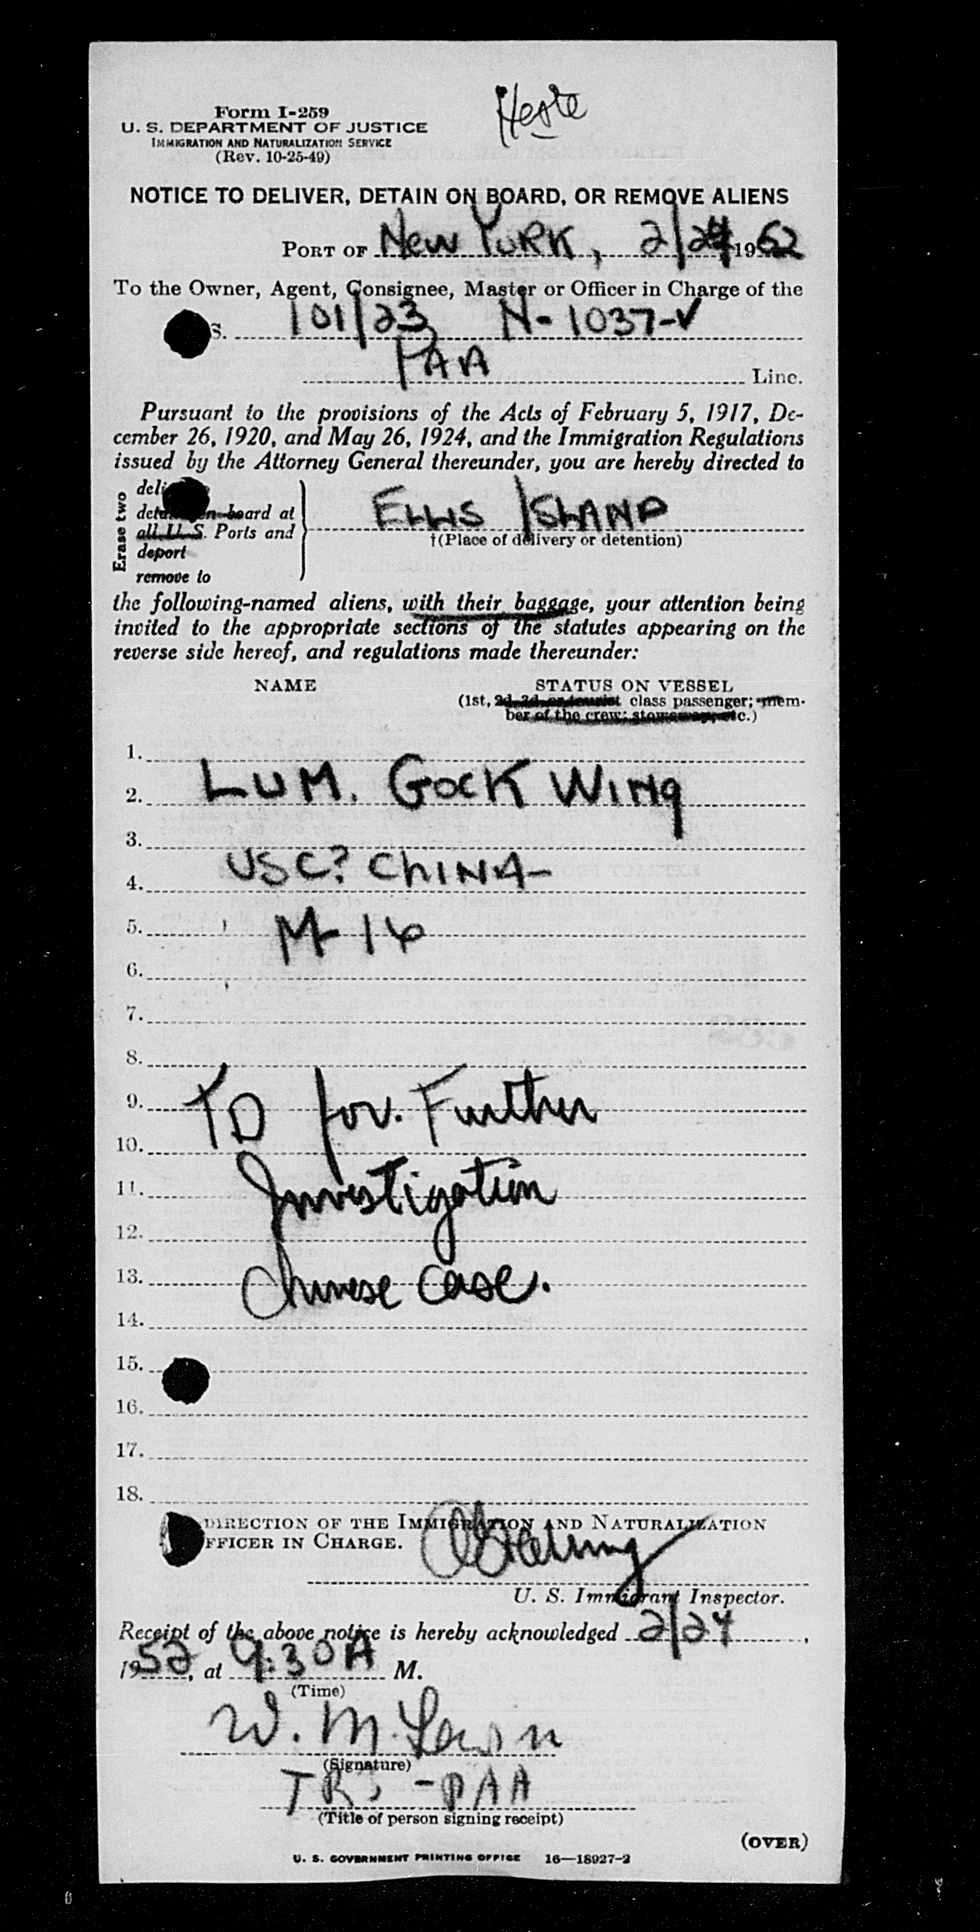 Form I-259
U. S. DEPARTMENT OF JUSTICE
IMMIGRATION AND NATURALIZATION SERVICE
(Rev. 10-25-49)
NOTICE TO DELIVER, DETAIN ON BOARD, OR REMOVE ALIENS
PORT OF New York, 2/24 1952
To the Owner, Agent, Consignee, Master or Officer in Charge of the
S. 101/23 N-1037-V
PAA Line.
Pursuant to the provisions of the Acts of February 5, 1917, De-
cember 26, 1920, and May 26, 1924, and the Immigration Regulations
issued by the Attorney General thereunder, you are hereby directed to
Erase two
deliver
detain on board at
all U. S. Ports and
deport
remove to
ELLIS ISLAND
†(Place of delivery or detention)
the following-named aliens, with their baggage, your attention being
invited to the appropriate sections of the statutes appearing on the
reverse side hereof, and regulations made thereunder:
NAME STATUS ON VESSEL
(1st, 2d, 3d, or tourist class passenger; mem-
ber of the crew; stowaway, etc.)
1.
2. LUM. GOCK WING
3.
4. USC? CHINA-
5. M-16
6.
7.
8.
9. TD for. Further
10.
11. Investigation
12.
13. Chinese case.
14.
15.
16.
17.
18.
DIRECTION OF THE IMMIGRATION AND NATURALIZATION
OFFICER IN CHARGE.
U. S. Immigrant Inspector.
Receipt of the above notice is hereby acknowledged 2/24,
1952, at 9:30A M.
(Time)
W. M.
(Signature)
-PAA
(Title of person signing receipt)
(OVER)
U. S. GOVERNMENT PRINTING OFFICE 16—18927-2